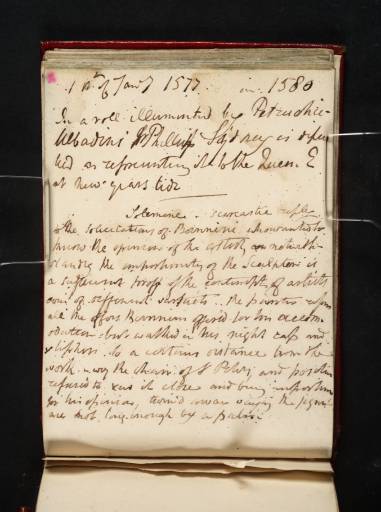 1st of Jan.y 1577 in 1580
In a roll illuminated by Petruchio
Ubaldini Sr Phillip Sydney is
ted as presenting it to the Queen E
at New years tide
Solemene. sarcastic reply
to the solicitations of Bernini who wanted to
know the opinion of the artist, notwith
standing the importunity of the sculptor is
a sufficient proof of the contempt of artists
some of different pursuits. The painter
all the offers Bernini offered for his accomo
dation but walked in his night cap and
slippers to a certain distance from the
work. viz the chair of St Peters, and
refused to view it close and being importun
for his opinion, turned away saying the figures
are not long enough by a palm.